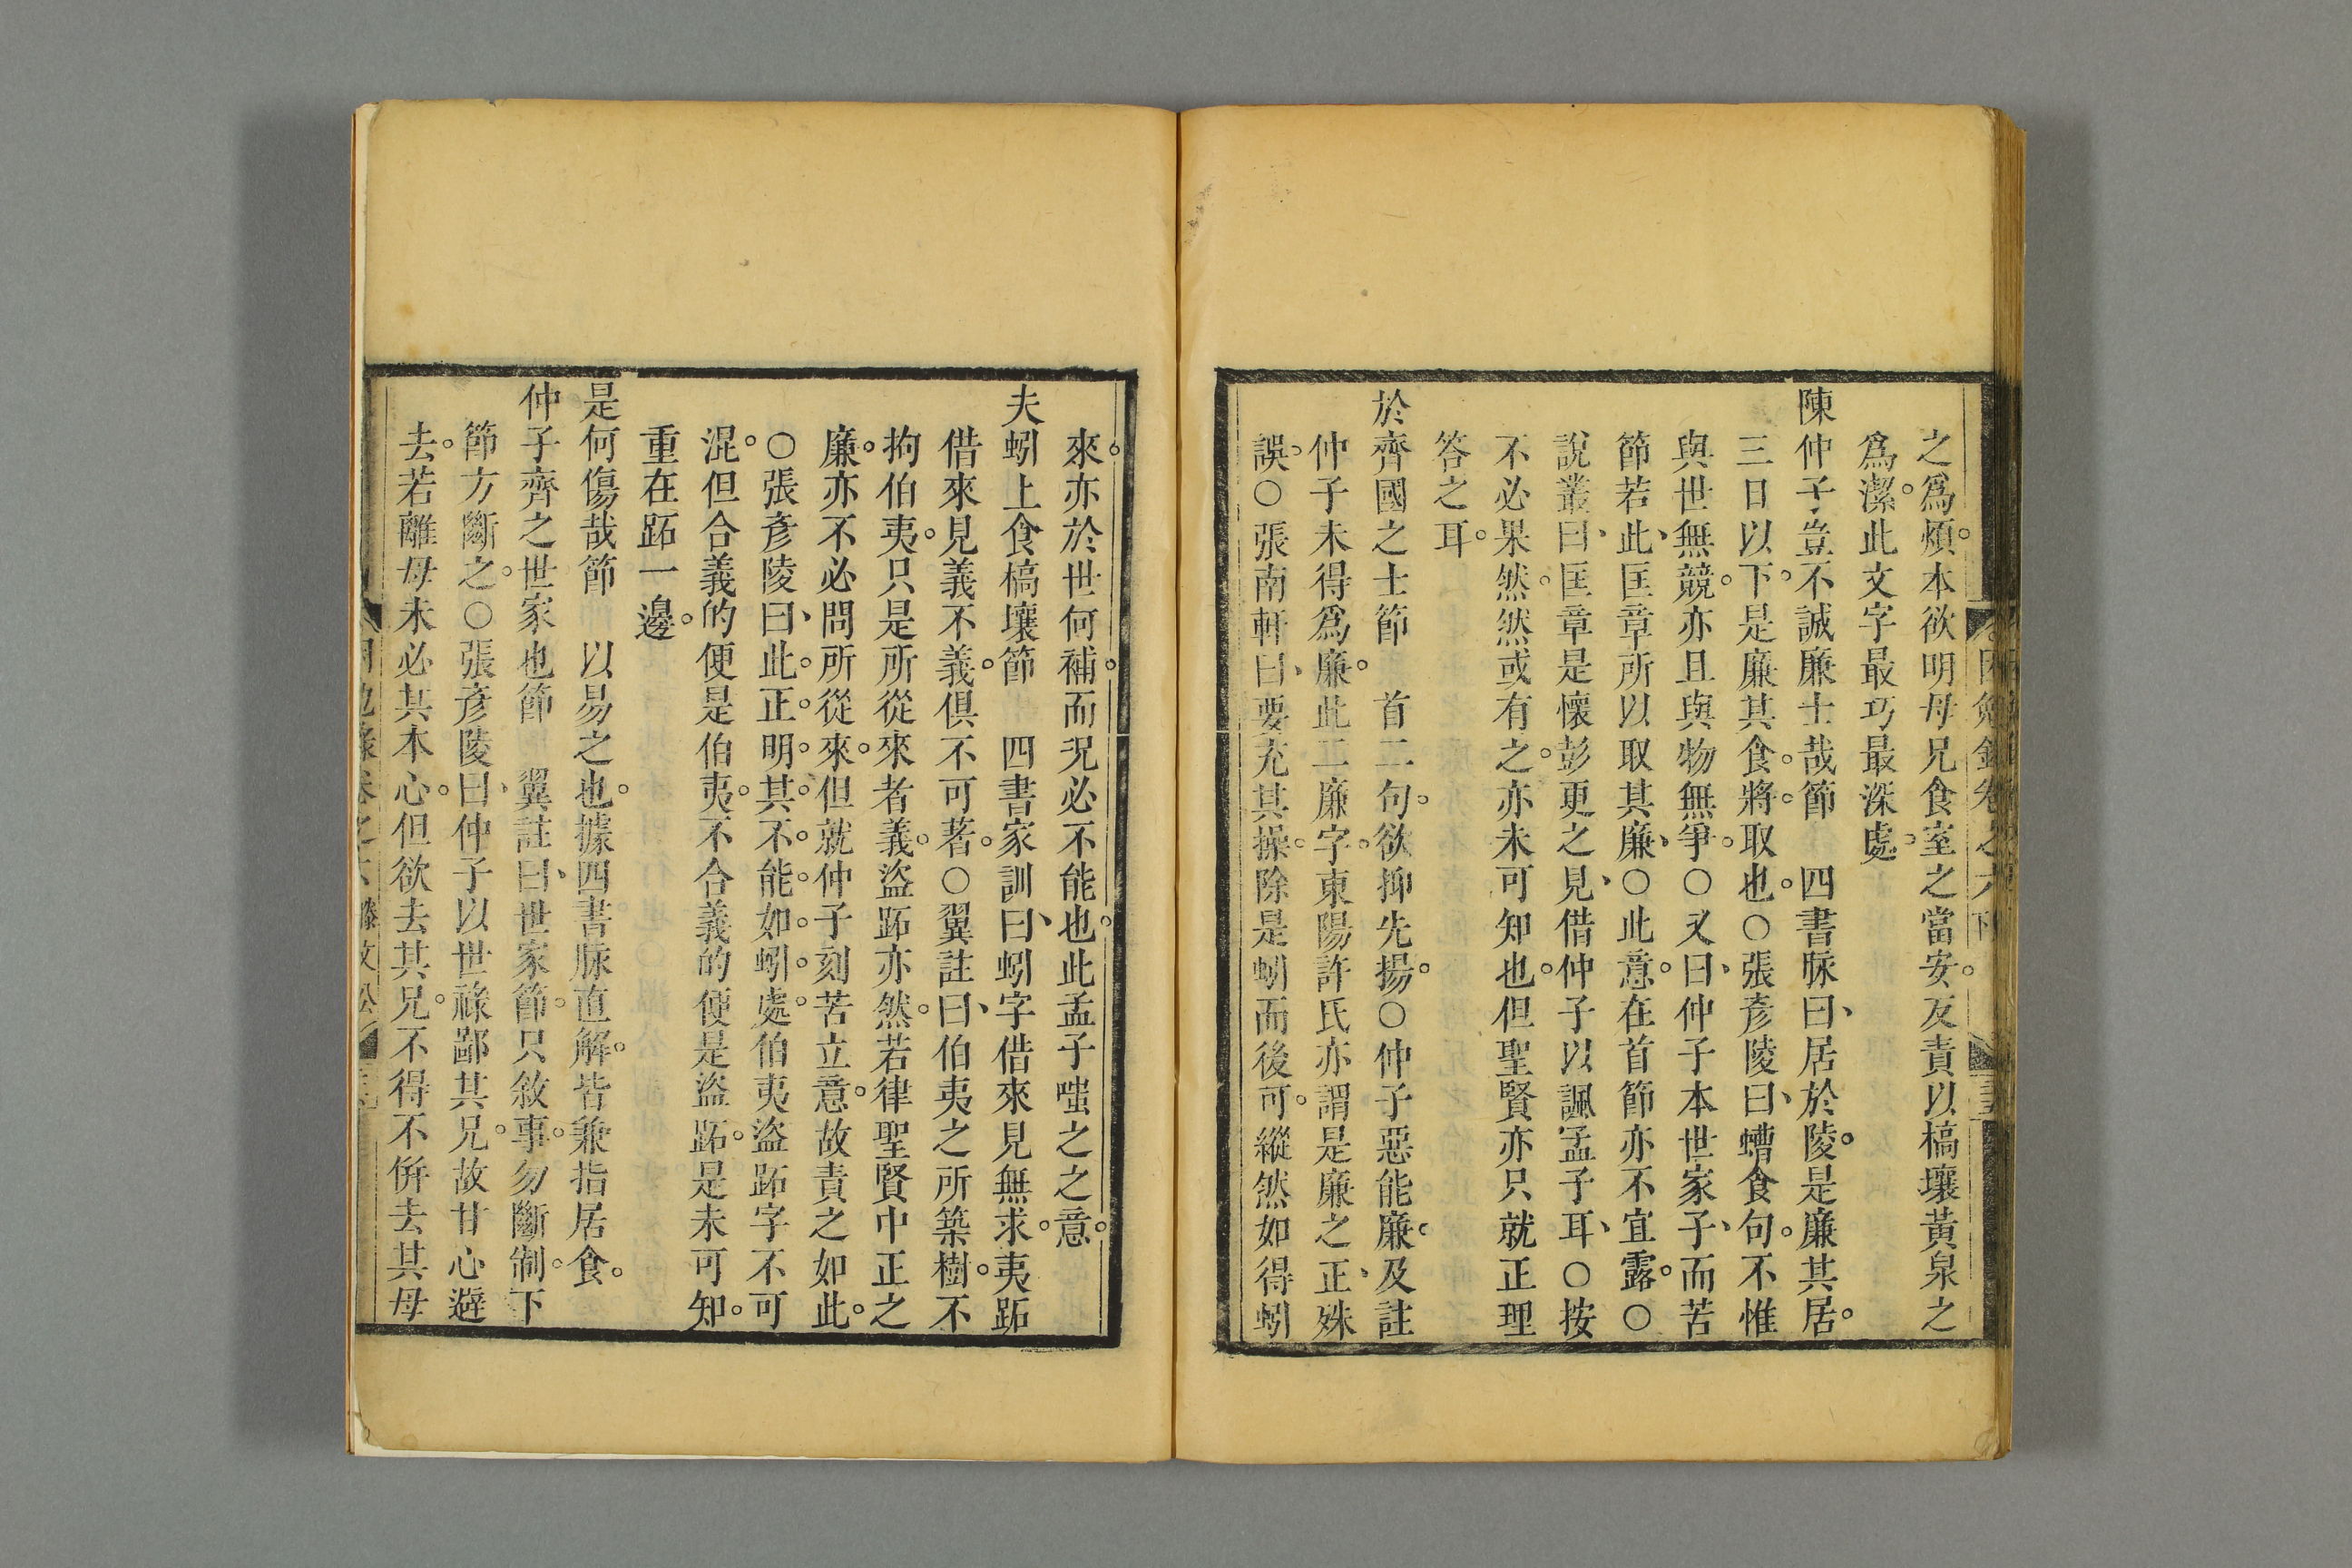 之爲煩。本欲明母兄食室之當安。反責以槁壤黃泉之
爲潔。此文字最巧最深處。
陳仲子豈不誠廉士哉節　四書脉曰、居於陵。是廉其居。
三日以下。是廉其食。將取也。○張彥陵曰、螬食句。不惟
與世無競。亦且與物無爭。○又曰、仲子本世家子、而苦
節若此、匡章所以取其廉、○此意。在首節亦不宜露。○
說叢曰、匡章是懷彭更之見、借仲子以諷孟子耳、○按
不必果然。然或有之。亦未可知也。但聖賢亦只就正理
答之耳。
於齊國之士節　首二句。欲抑先揚。○仲子惡能廉。及註
仲子未得爲廉。此二廉字。東陽許氏亦謂是廉之正、殊
誤。○張南軒曰、要充其操。除是蚓而後可。縱然如得蚓
來。亦於世何補。而况必不能也。此孟子嗤之之意。
夫蚓上食槁壤節　四書家訓曰、蚓字借來見無求。夷跖
借來見義不義。俱不可著。○翼註曰、伯夷之所築樹。不
拘伯夷。只是所從來者義。盜跖亦然。若律聖賢中正之
廉。亦不必問所從來。但就仲子刻苦立意。故責之如此。
○張彥陵曰、此。正。明。其。不。能。如。蚓。處。伯夷盜跖字不可
混。但合義的便是伯夷。不合義的便是盜跖。是未可知。
重在跖一邊。
是何傷哉節　以易之也。據四書脉直解。皆兼指居食。
仲子齊之世家也節　翼註曰、世家節。只敘事。勿斷制。下
節方斷之。○張彥陵曰、仲子以世祿鄙其兄。故甘心避
去。若離母未必其本心。但欲去其兄。不得不倂去其母